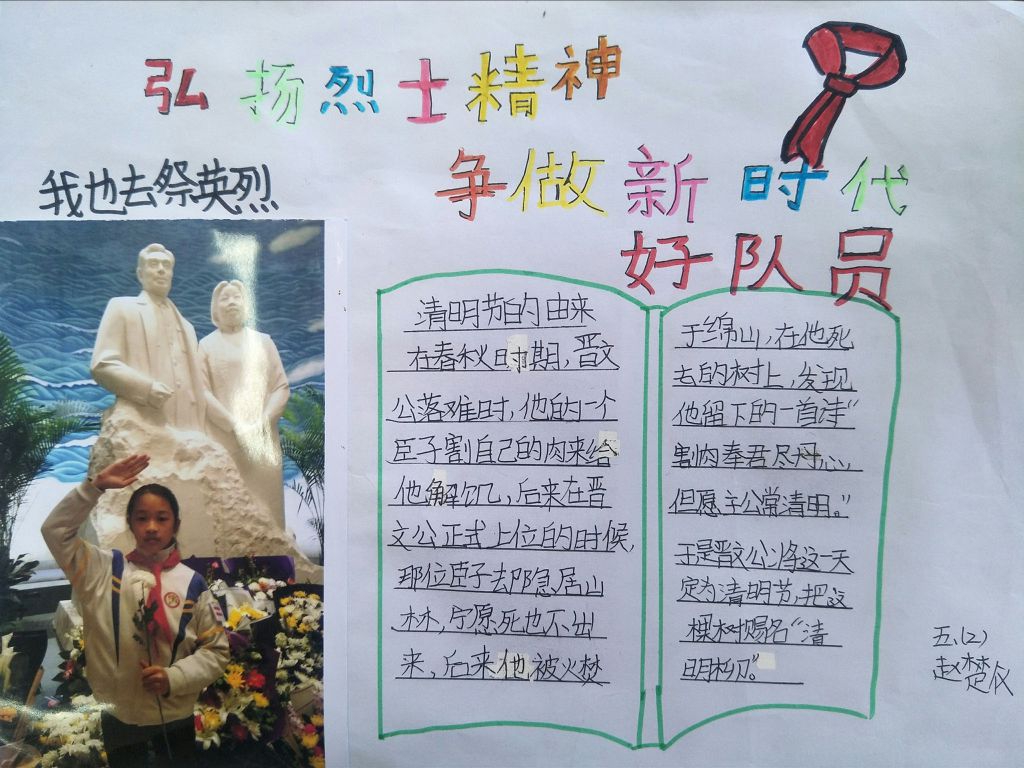 弘扬烈士精神
争做新时代
好队员
我也去祭英烈
清明节的由来
在春秋时期,晋文
公落难时,他的一个
臣子割自己的肉来给
他解饥,后来在晋
文公正式上位的时候,
那位臣子却隐居山
林,宁愿死也不出
来,后来他被火焚
于绵山,在他死
去的树上,发现
他留下的一首诗“
割肉奉君尽丹心,
但愿主公常清明。”
于是晋文公将这一天
定为清明节,把这
棵树赐名“清
明柳。”
五.(2)
赵楚仪